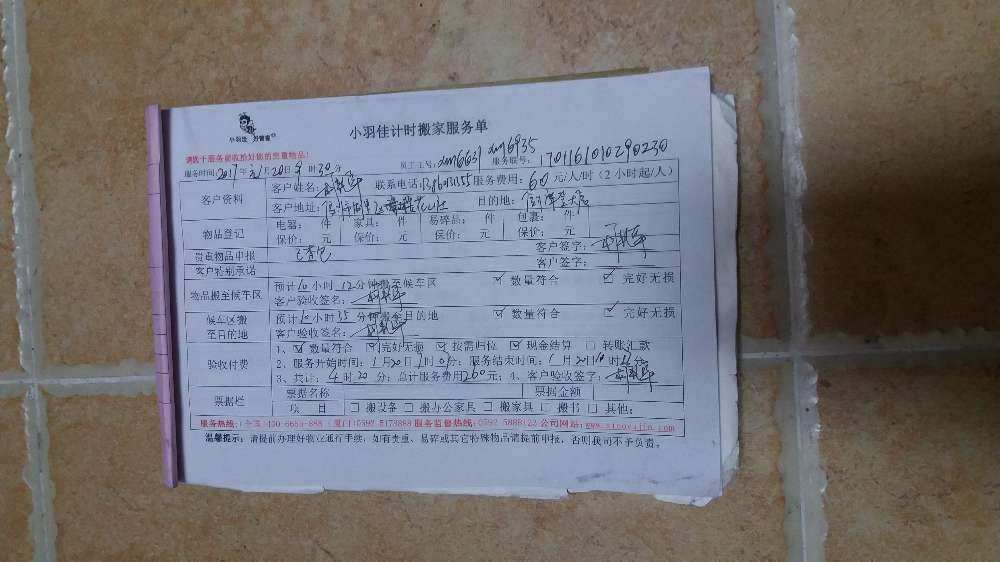 小羽佳 好管家
小羽佳计时搬家服务单
请既于服务前收拾好您的贵重物品！
员工工号：xm6631 xm6935 服务联号：1701161010290230
服务时间：2017年 1月20日9时30分
客户资料 客户姓名： 联系电话： 服务费用：60元/人/时（2小时起/人）
客户地址： 目的地：
物品登记 电器： 件 家具： 件 易碎品： 件 包裹： 件
保价： 元 保价： 元 保价： 元 保价： 元
客户签字：
贵重物品申报 已查包
客户签字：
客户特别承诺
物品搬至候车区 预计10小时12分钟搬至候车区 ☑ 数量符合 ☑ 完好无损
客户验收签名：
候车区搬至目的地 预计10小时35分钟搬至目的地 ☑ 数量符合 ☑ 完好无损
客户验收签名：
验收付费 1、☑ 数量符合 ☑ 完好无损 ☑ 按需归位 ☑ 现金结算 □ 转账汇款
2、服务开始时间：1月20日 时 分；服务结束时间：1月20日 时 分
3、共计：4时20分；总计服务费用260元；4、客户验收签字：
票据栏 票据名称 票据金额
项 目 □ 搬设备 □ 搬办公家具 □ 搬家具 □ 搬书 □ 其他：
服务热线：全国 400-6655-888 （厦门）0592-5179888 服务监督热线：0592-5888122 公司网站：www.xiaoyujia.com
温馨提示：请提前办理好物业通行手续，如有贵重、易碎或其它特殊物品请提前申报，否则我司不予负责。